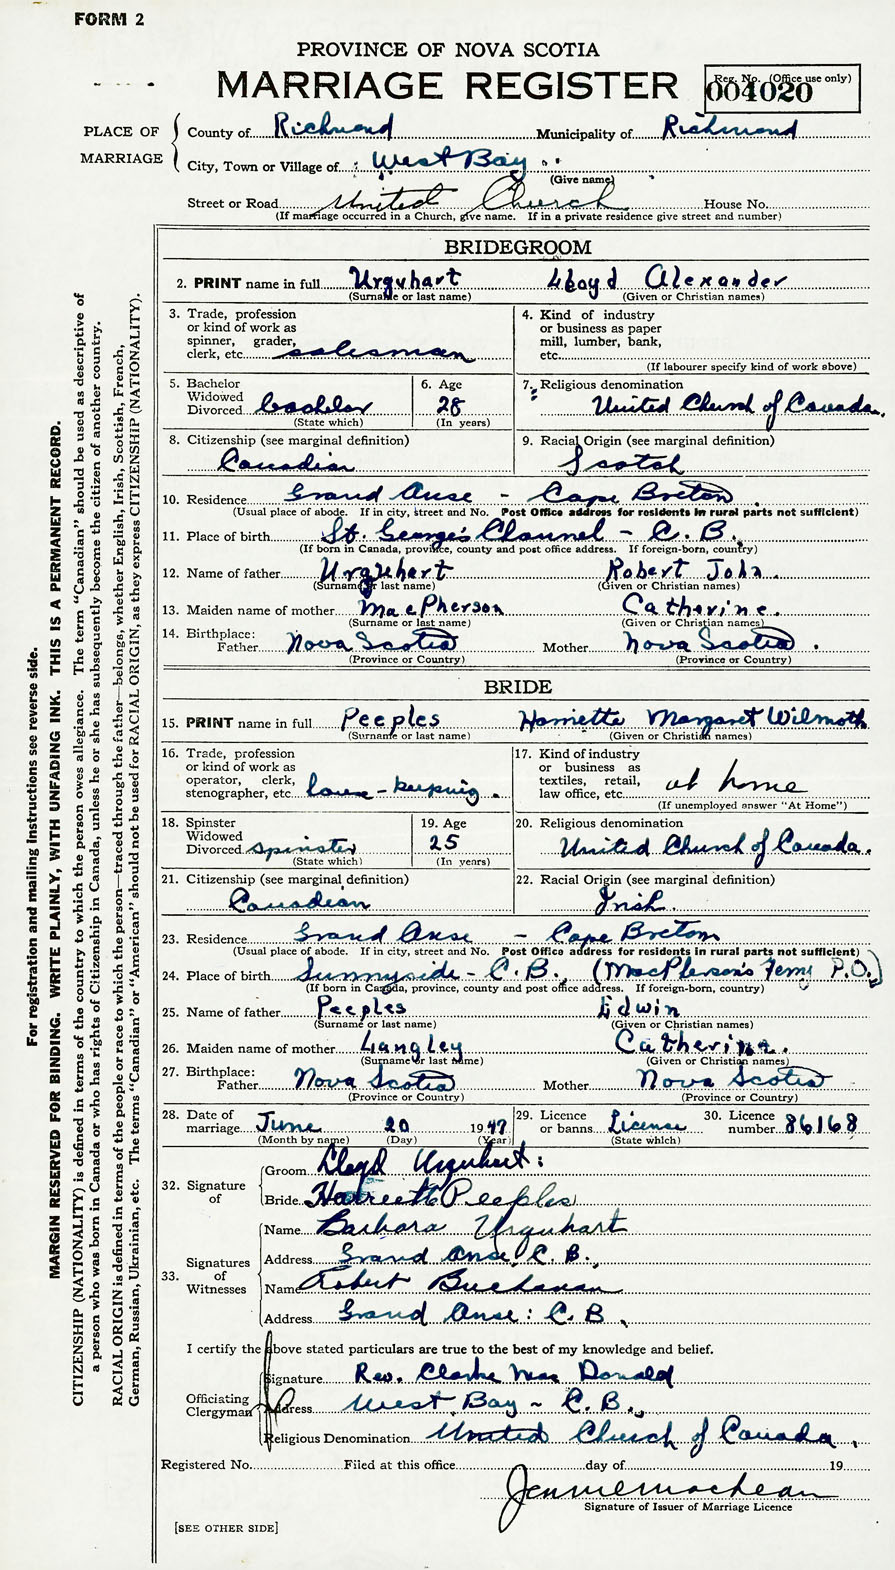 FORM 2
PROVINCE OF NOVA SCOTIA
MARRIAGE REGISTER
Reg. No. (Office use only)
004020
PLACE OF MARRIAGE
County of Richmond Municipality of Richmond
City, Town or Village of West Bay
(Give name)
Street or Road United Church House No.
(If marriage occurred in a Church, give name. If in a private residence give street and number)
BRIDEGROOM
2. PRINT name in full Urquhart Lloyd Alexander
(Surname or last name) (Given or Christian names)
3. Trade, profession or kind of work as spinner, grader, clerk, etc. salesman
4. Kind of industry or business as paper mill, lumber, bank, etc.
(If labourer specify kind of work above)
5. Bachelor Widowed Divorced bachelor
(State which)
6. Age 28
(In years)
7. Religious denomination
United Church of Canada.
8. Citizenship (see marginal definition)
Canadian
9. Racial Origin (see marginal definition)
Scotch
10. Residence Grand Anse - Cape Breton
(Usual place of abode. If in city, street and No. Post Office address for residents in rural parts not sufficient)
11. Place of birth St. George's Channel - C. B.
(If born in Canada, province, county and post office address. If foreign-born, country)
12. Name of father Urquhart Robert John.
(Surname or last name) (Given or Christian names)
13. Maiden name of mother MacPherson Catherine.
(Surname or last name) (Given or Christian names)
14. Birthplace:
Father Nova Scotia Mother Nova Scotia.
(Province or Country) (Province or Country)
BRIDE
15. PRINT name in full Peeples Harriette Margaret Wilmoth
(Surname or last name) (Given or Christian names)
16. Trade, profession or kind of work as operator, clerk, stenographer, etc. house-keeping.
17. Kind of industry or business as textiles, retail, law office, etc. at home
(If unemployed answer "At Home")
18. Spinster Widowed Divorced spinster
(State which)
19. Age 25
(In years)
20. Religious denomination
United Church of Canada.
21. Citizenship (see marginal definition)
Canadian
22. Racial Origin (see marginal definition)
Irish.
23. Residence Grand Anse - Cape Breton
(Usual place of abode. If in city, street and No. Post Office address for residents in rural parts not sufficient)
24. Place of birth Sunnyside - C.B. (MacPherson's Ferry P.O.)
(If born in Canada, province, county and post office address. If foreign-born, country)
25. Name of father Peeples Edwin
(Surname or last name) (Given or Christian names)
26. Maiden name of mother Langley Catherine.
(Surname or last name) (Given or Christian names)
27. Birthplace:
Father Nova Scotia Mother Nova Scotia
(Province or Country) (Province or Country)
28. Date of marriage June 20 1947
(Month by name) (Day) (Year)
29. Licence or banns License
(State which)
30. Licence number 86168
32. Signature of
Groom Lloyd Urquhart:
Bride Harriett Peeples
33. Signatures of Witnesses
Name Barbara Urquhart
Address Grand Anse, C. B.
Name Robert Buchanan
Address Grand Anse: C. B.
I certify the above stated particulars are true to the best of my knowledge and belief.
Officiating Clergyman
Signature Rev. Clarke MacDonald
Address West Bay - C. B.
Religious Denomination United Church of Canada.
Registered No. Filed at this office day of 19
Jennie MacLean
Signature of Issuer of Marriage Licence
[SEE OTHER SIDE]
For registration and mailing instructions see reverse side.
MARGIN RESERVED FOR BINDING. WRITE PLAINLY, WITH UNFADING INK. THIS IS A PERMANENT RECORD.
CITIZENSHIP (NATIONALITY) is defined in terms of the country to which the person owes allegiance. The term "Canadian" should be used as descriptive of
a person who was born in Canada or who has rights of Citizenship in Canada, unless he or she has subsequently become the citizen of another country.
RACIAL ORIGIN is defined in terms of the people or race to which the person—traced through the father—belongs, whether English, Irish, Scottish, French,
German, Russian, Ukrainian, etc. The terms "Canadian" or "American" should not be used for RACIAL ORIGIN, as they express CITIZENSHIP (NATIONALITY).